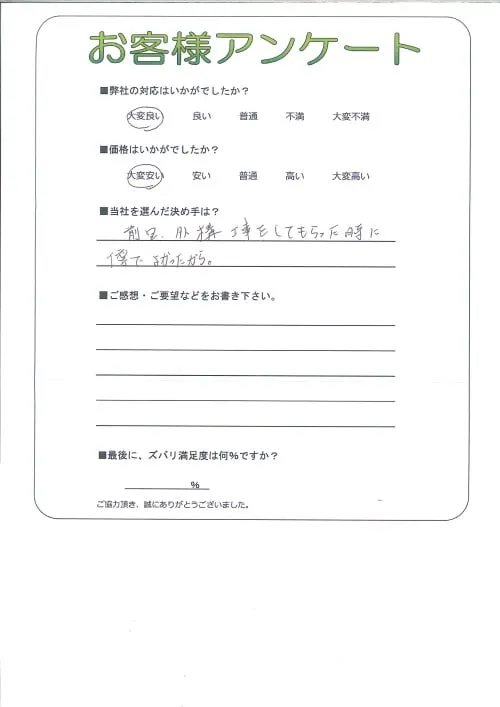 お客様アンケート
■弊社の対応はいかがでしたか？
大変良い 良い 普通 不満 大変不満
■価格はいかがでしたか？
大変安い 安い 普通 高い 大変高い
■当社を選んだ決め手は？
前回、外構工事をしてもらった時に
よかったから。
■ご感想・ご要望などをお書き下さい。
■最後に、ズバリ満足度は何%ですか？
%
ご協力頂き、誠にありがとうございました。